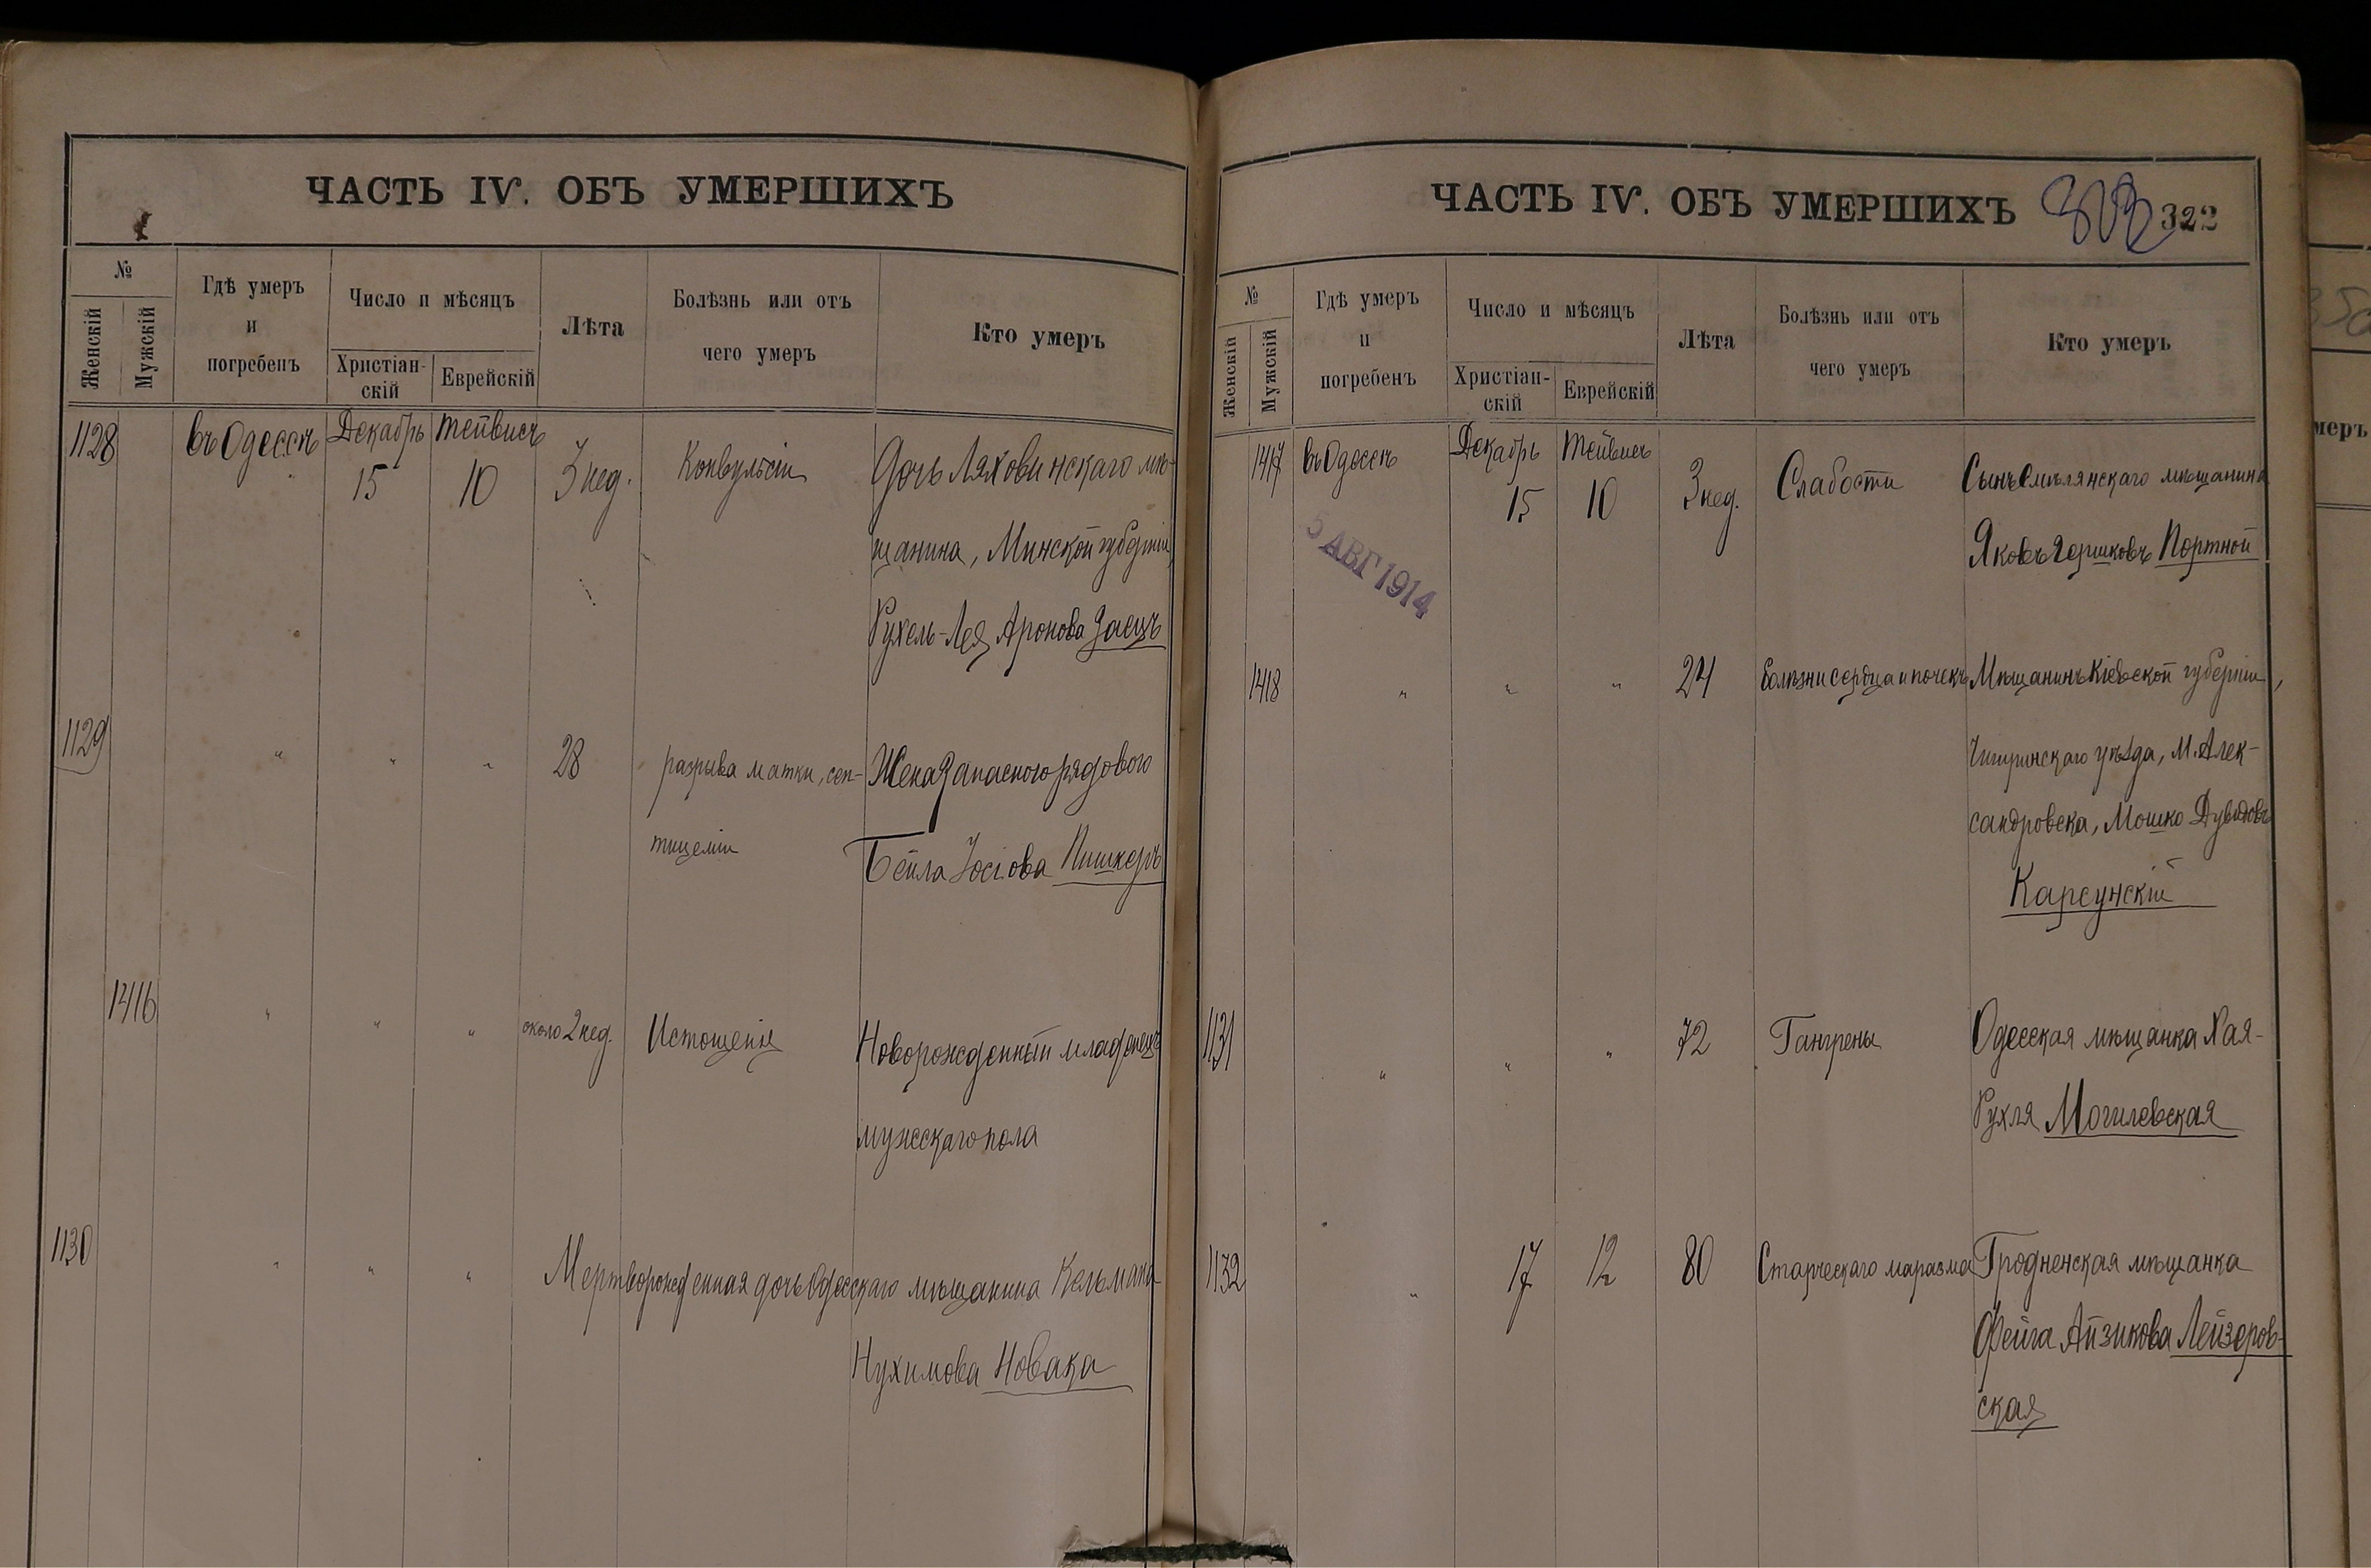 ЧАСТЬ IV. ОБЪ УМЕРШИХЪ
№
Женскій
Мужскій
Гдѣ умеръ
и
погребенъ
Число и мѣсяцъ
Христіан-
скій
Еврейскій
Лѣта
Болѣзнь или отъ
чего умеръ
Кто умеръ
1128 въ Одессѣ Декабрь Тейвисъ
15 10 3 нед. Конвульсіи Дочь Ляховинскаго мѣ-
щанина, Минской губерніи,
Рухель-Лея Аронова Заецъ
1129 " " " 28 разрыва матки, сеп- Жена Запасного рядового
тицеміи Бейла Іосіова Пишкеръ
1416 " " " около 2 нед. Истощенія Новорожденный младенецъ
мужескаго пола
1130 " " " Мертворожденная дочь Одесскаго мѣщанина Кельмана
Нухимова Новака
ЧАСТЬ IV. ОБЪ УМЕРШИХЪ
322
№
Женскій
Мужскій
Гдѣ умеръ
и
погребенъ
Число и мѣсяцъ
Христіан-
скій
Еврейскій
Лѣта
Болѣзнь или отъ
чего умеръ
Кто умеръ
1417 въ Одессѣ Декабрь Тейвисъ
15 10 3 нед. Слабости Сынъ Смѣлянскаго мѣщанина
Яковъ Гершковъ Портной
5 АВГ 1914
1418 " " " 24 Болѣзни сердца и почекъ Мѣщанинъ Кіевской губерніи,
Чигиринскаго уѣзда, М. Алек-
сандровска, Мошко Дувидовъ
Карсунскій
1131 " " " 72 Гангрены Одесская мѣщанка Хая-
Рухля Могилевская
1132 " 17 12 80 Старческаго маразма Гродненская мѣщанка
Фейга Айзикова Лейзеров-
ская
меръ